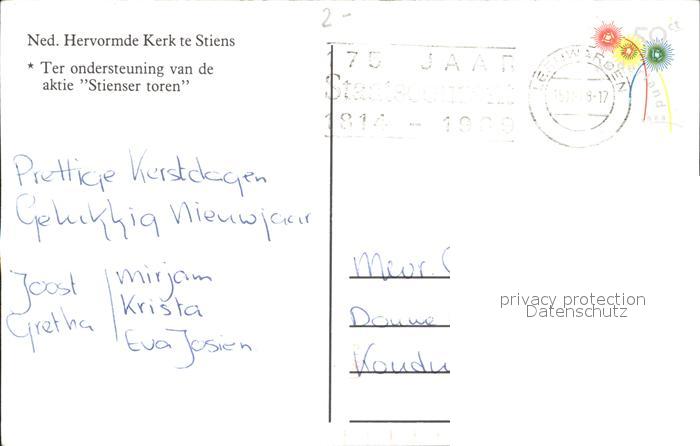 2-
Ned. Hervormde Kerk te Stiens
* Ter ondersteuning van de
aktie "Stienser toren"
175 JAAR
1814 - 1989
LEEUWARDEN
50 ct
Prettige Kerstdagen
Gelukkig Nieuwjaar
Joost
Gretha
Mirjam
Krista
Eva Josien
Mevr.
Douwe
Koudu
privacy protection
Datenschutz